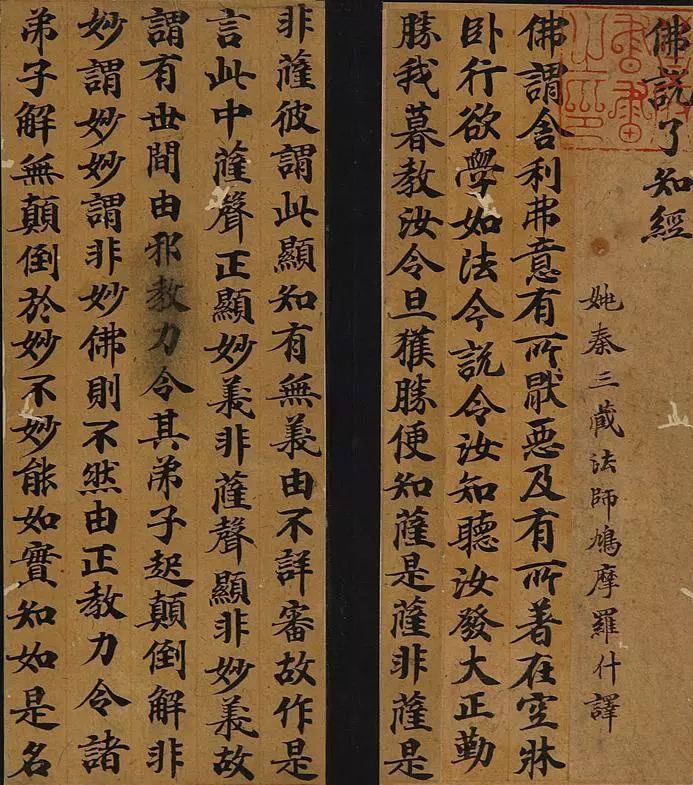 佛說了知經
姚秦三藏法師鳩摩羅什譯
佛謂舍利弗意有所猒惡及有所著在空牀
卧行欲學如法今說令汝知聽汝發大正勤
勝我暮教汝令旦獲勝便知薩是薩非薩是
非薩彼謂此顯知有無義由不詳審故作是
言此中薩聲正顯妙義非薩聲顯非妙義故
謂有世間由邪教力令其弟子起顛倒解非
妙謂妙妙謂非妙佛則不然由正教力令諸
弟子解無顛倒於妙不妙能如實知如是名